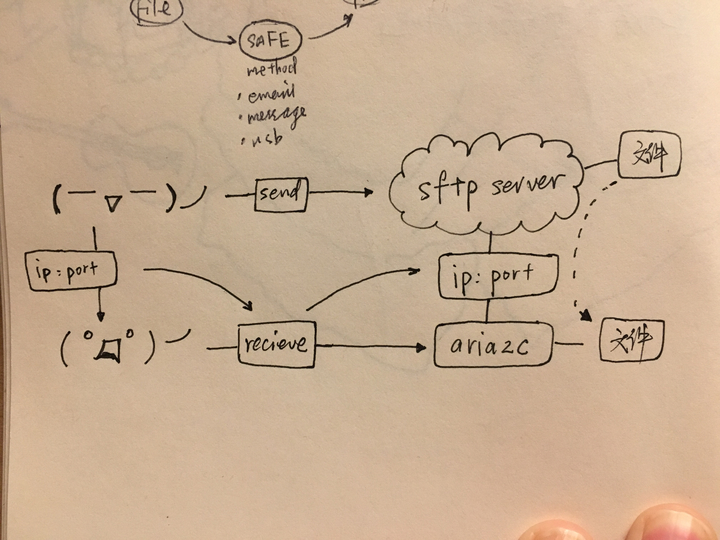 File
SAFE
method
· email
· message
· usb
(￣▽￣)ノ
send
sftp server
文件
ip:port
ip:port
(°Д°)ノ
recieve
aria2c
文件